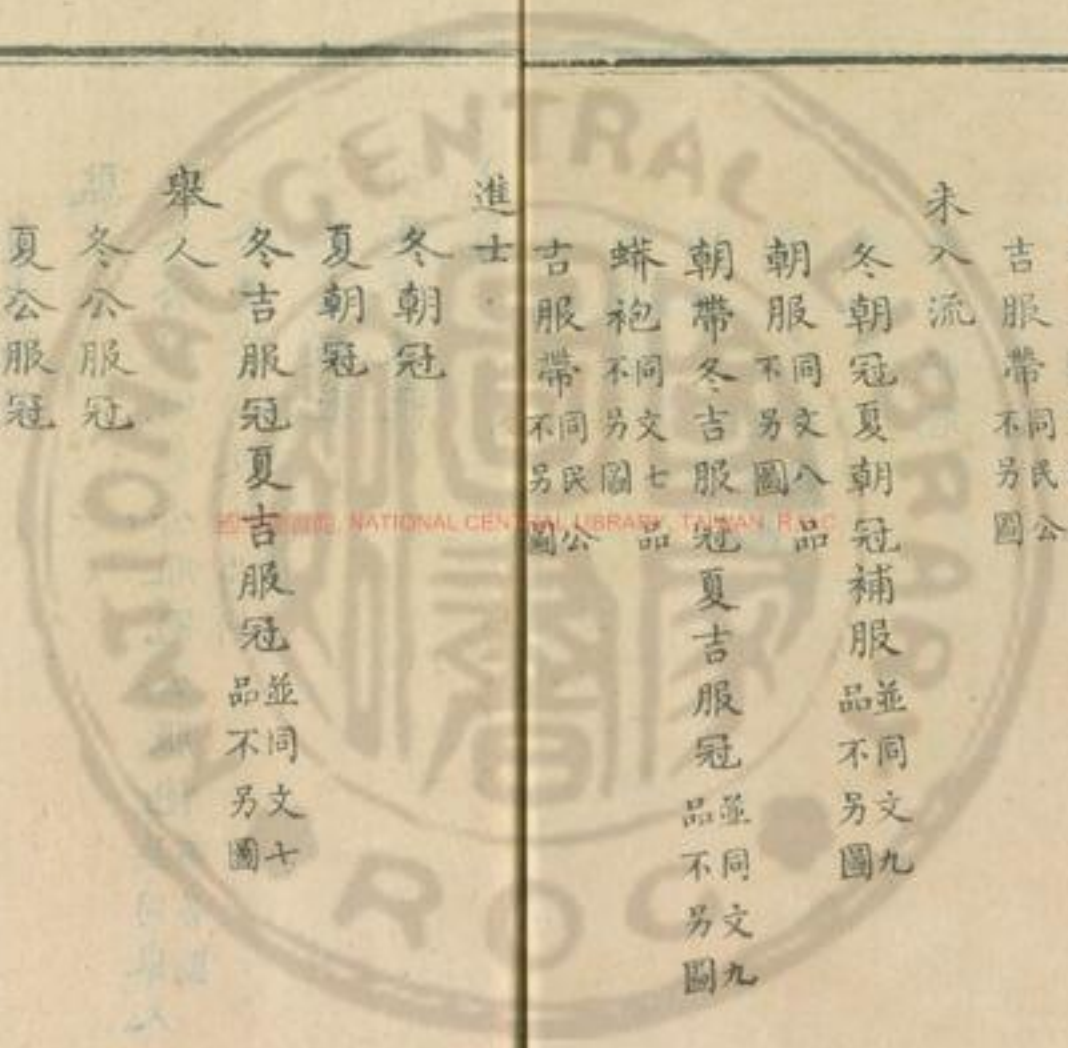 吉服帶同民公不另圖
未入流
冬朝冠夏朝冠補服並同文九品不另圖
朝服同文八品不另圖
朝帶冬吉服冠夏吉服冠並同文九品不另圖
蟒袍同文七品不另圖
吉服帶同民公不另圖
進士
冬朝冠
夏朝冠
冬吉服冠夏吉服冠並同文七品不另圖
舉人
冬公服冠
夏公服冠
NATIONAL CENTRAL LIBRARY, TAIWAN, R.O.C
NATIONAL CENTRAL LIBRARY ROC